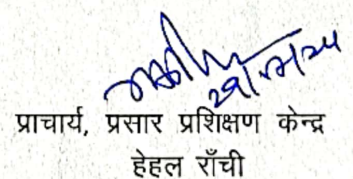 प्राचार्य, प्रसार प्रशिक्षण केन्द्र
हेहल राँची